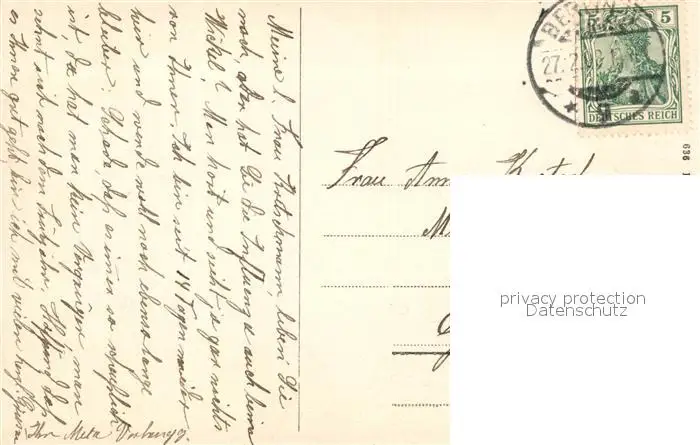 Meine l. Frau Kutschmann, leben Sie
noch, oder hat Sie die Influenza auch beim
Wickel? Man hört und sieht ja gar nichts
von Ihnen. Ich bin seit 14 Tagen wieder
hier und werde wohl noch ebenso lange
bleiben. Schade, daß es immer so
ist, da hat man kein Vergnügen, man
sehnt sich nach dem Frühjahr. Hoffend daß
es Ihnen gut geht bin ich mit vielen herzl. Grüssen
Ihre Meta
BERLIN
27.2.
5
5
DEUTSCHES REICH
636
Frau
privacy protection
Datenschutz